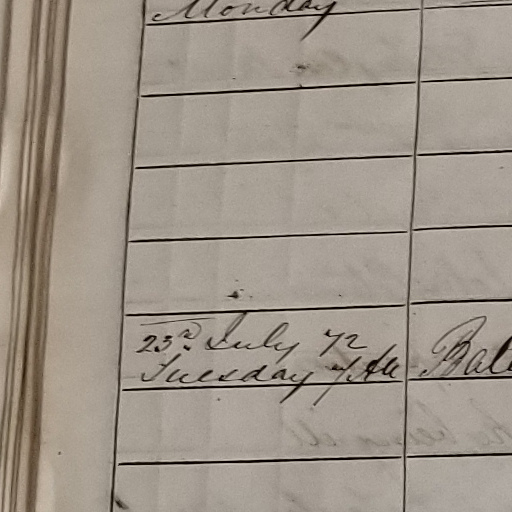 Monday
23rd July 72
Tuesday 7 AM Bal